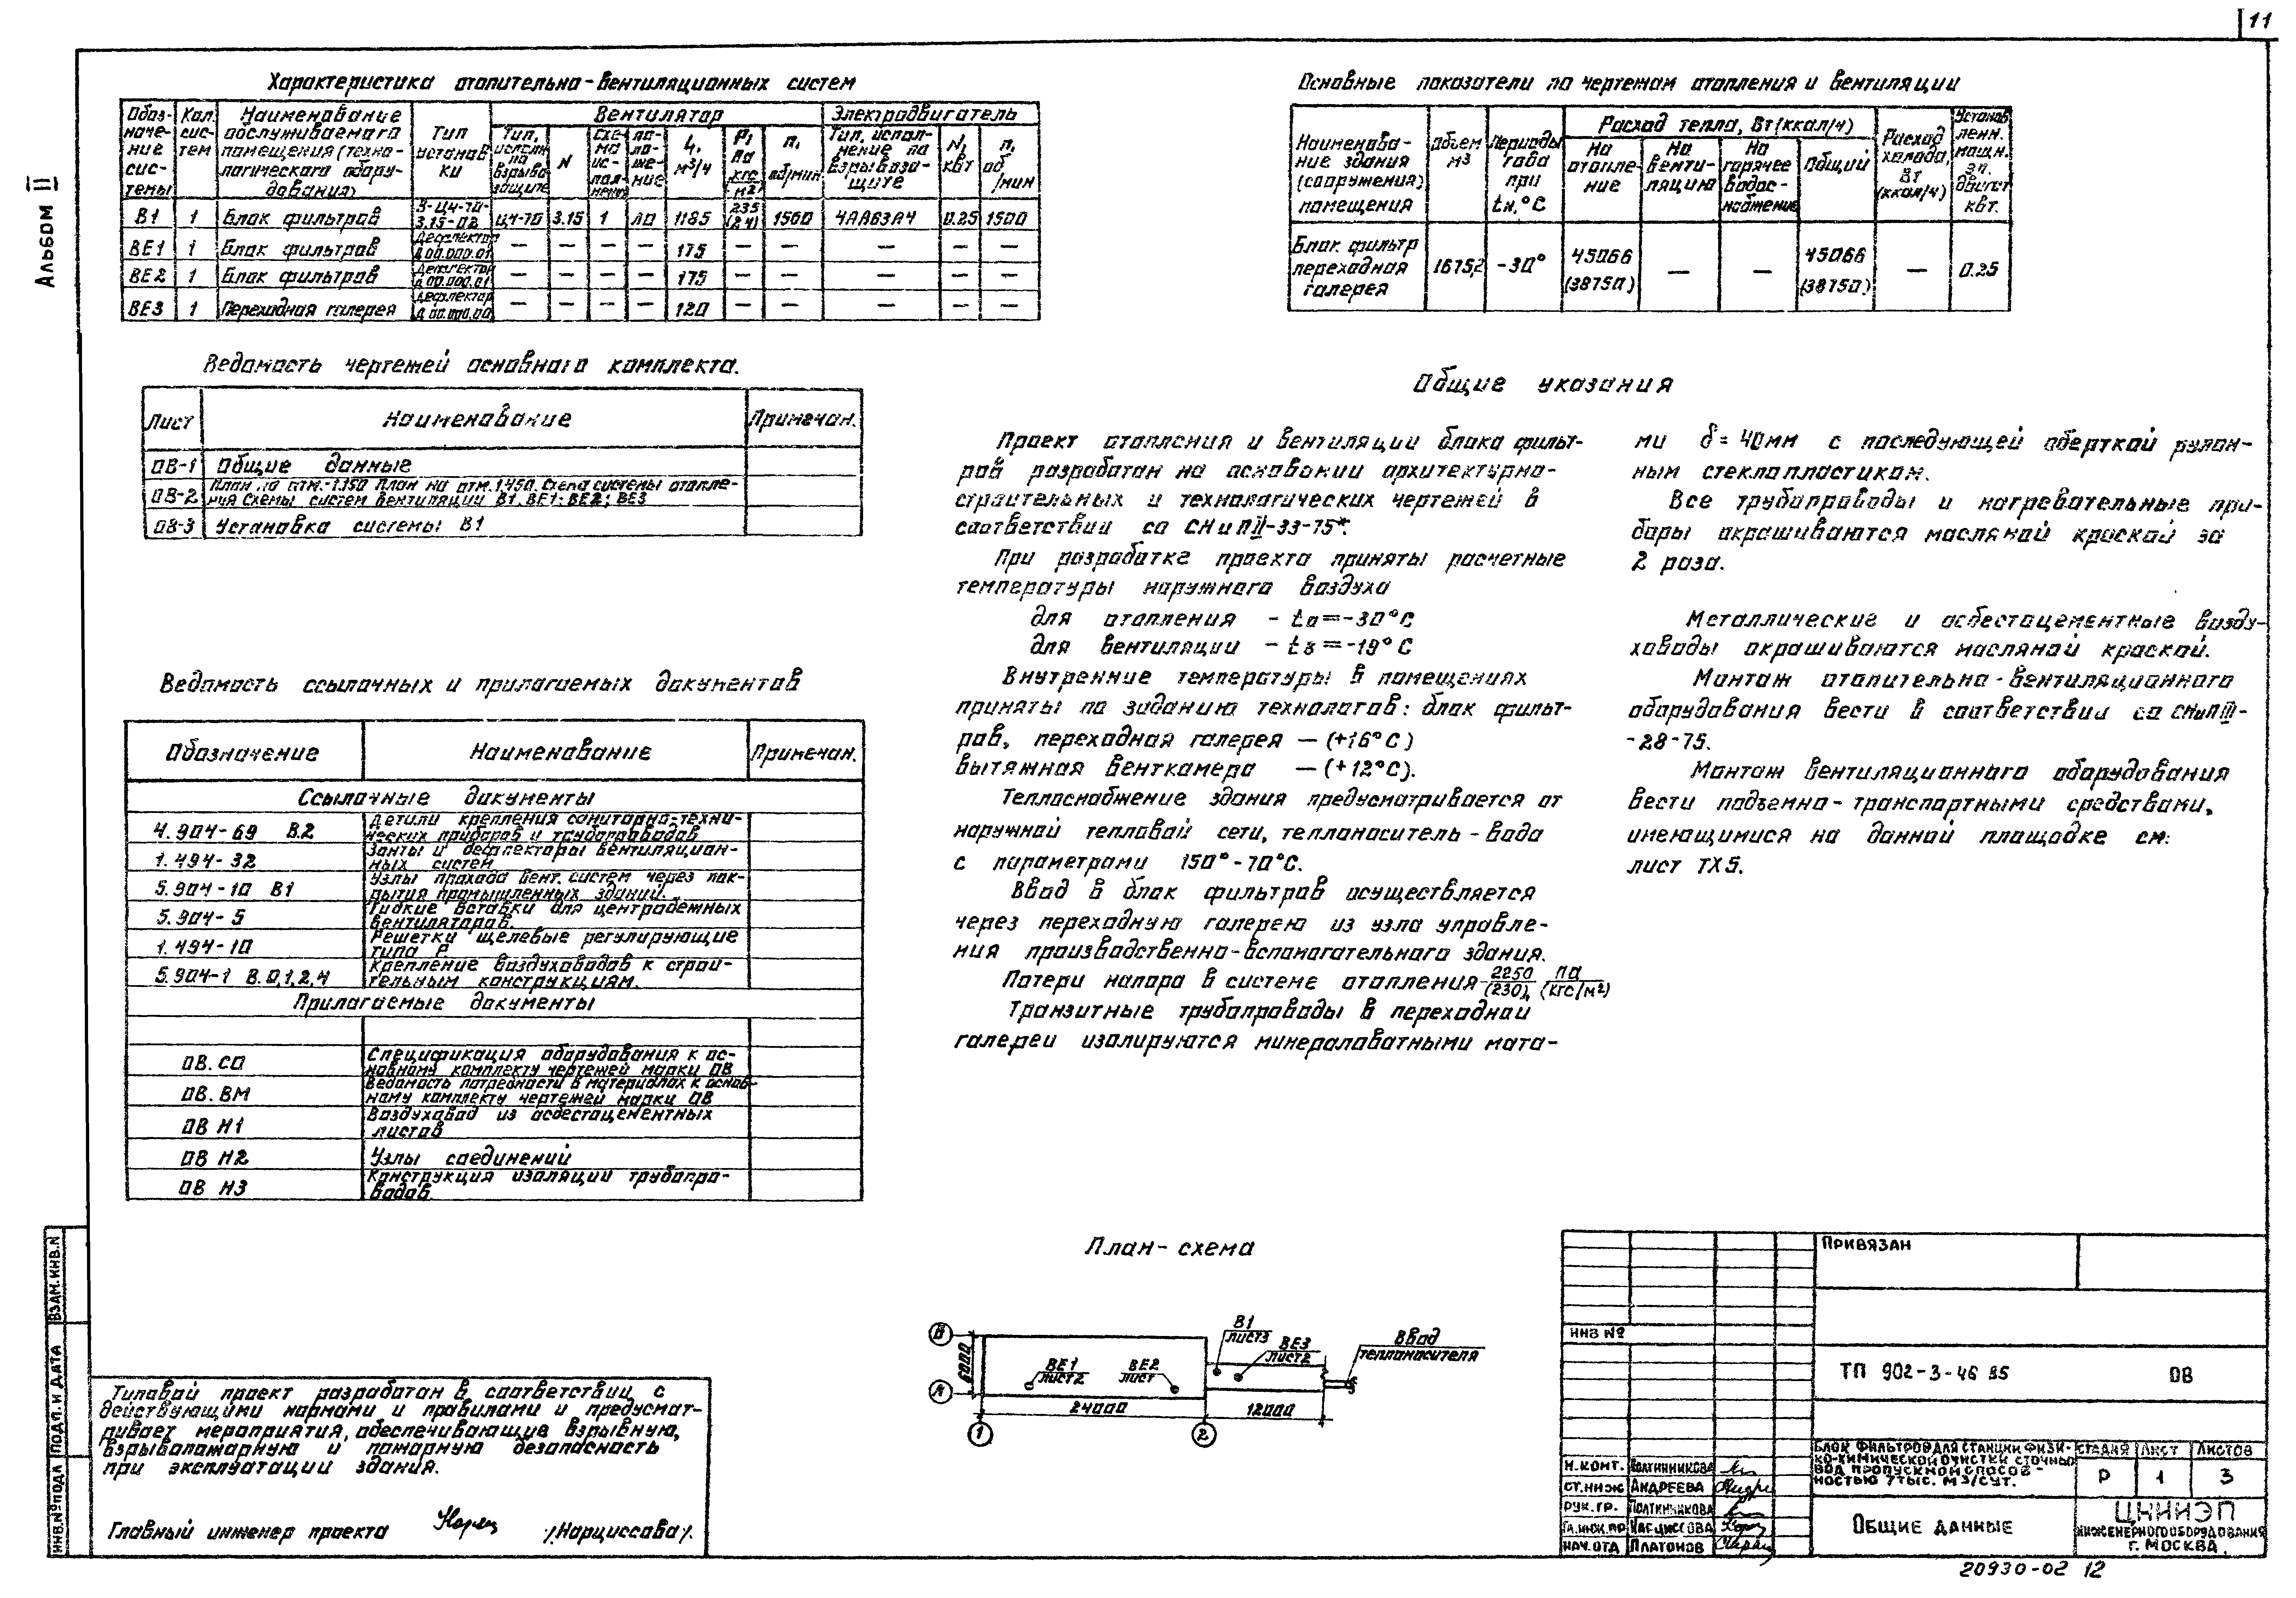 11
Альбом II
Характеристика отопительно-вентиляционных систем
Обоз-
наче-
ние
сис-
темы
Кол.
сис-
тем
Наименование
обслуживаемого
помещения (техно-
логического обору-
дования)
Тип
установ
ки
Вентилятор
Тип,
исполн
по
взрыво
защите
N
Схе-
ма
ис-
пол-
нения
по-
ло-
же-
ние
L,
м³/ч
P,
Па
кгс
м²
п,
об/мин
Электродвигатель
Тип, испол-
нение по
взрывоза-
щите
N,
квт
п,
об
/мин
В1 1 Блок фильтров В-Ц4-70-3.15-02 Ц4-70 3.15 1 ЛО 1185 235 (24) 1500 4АА63А4 0.25 1500
ВЕ1 1 Блок фильтров Дефлектор Д 00.000.01 — — — — 175 — — — — —
ВЕ2 1 Блок фильтров Дефлектор Д 00.000.01 — — — — 175 — — — — —
ВЕ3 1 Переходная галерея Дефлектор Д 00.000.00 — — — — 120 — — — — —
Основные показатели по чертежам отопления и вентиляции
Наименова-
ние здания
(сооружения)
помещения
Объем
м3
Периоды
года
при
tн,°С
Расход тепла, Вт (ккал/ч)
На
отопле-
ние
На
венти-
ляцию
На
горячее
водос-
набжение
Общий
Расход
холода,
Вт
(ккал/ч)
Установ
ленн.
мощн.
эл.
двигат
квт.
Блок фильтр
переходная
галерея
1675,2 -30° 45066 (38750) — — 45066 (38750) — 0.25
Ведомость чертежей основного комплекта.
Лист Наименование Примечан.
ОВ-1 Общие данные
ОВ-2 План на отм.-1.150 План на отм. 1.450. Схема системы отопле-
ния Схемы систем вентиляции В1, ВЕ1; ВЕ2; ВЕ3
ОВ-3 Установка системы В1
Ведомость ссылочных и прилагаемых документов
Обозначение Наименование Примечан.
Ссылочные документы
4.904-69 В.2 Детали крепления санитарно-техни-
ческих приборов и трубопроводов
1.494-32 Зонты и дефлекторы вентиляцион-
ных систем
5.904-10 В1 Узлы прохода вент. систем через пок-
рытия промышленных зданий.
5.904-5 Гибкие вставки для центробежных
вентиляторов.
1.494-10 Решетки щелевые регулирующие
типа Р
5.904-1 В.0,1,2,4 Крепление воздуховодов к строи-
тельным конструкциям.
Прилагаемые документы
ОВ.СО Спецификация оборудования к ос-
новному комплекту чертежей марки ОВ
ОВ.ВМ Ведомость потребности в материалах к основ-
ному комплекту чертежей марки ОВ
ОВ Н1 Воздуховод из асбестоцементных
листов
ОВ Н2 Узлы соединений
ОВ Н3 Конструкция изоляции трубопро-
водов
Общие указания
Проект отопления и вентиляции блока фильт-
ров разработан на основании архитектурно-
строительных и технологических чертежей в
соответствии со СНиПII-33-75*.
При разработке проекта приняты расчетные
температуры наружного воздуха
для отопления - tо=-30°С
для вентиляции - tв=-19°С
Внутренние температуры в помещениях
приняты по заданию технологов: блок фильт-
ров, переходная галерея — (+16°С)
вытяжная венткамера — (+12°С).
Теплоснабжение здания предусматривается от
наружной тепловой сети, теплоноситель - вода
с параметрами 150°-70°С.
Ввод в блок фильтров осуществляется
через переходную галерею из узла управле-
ния производственно-вспомогательного здания.
Потери напора в системе отопления 2250/(230), Па/(кгс/м²)
Транзитные трубопроводы в переходной
галереи изолируются минераловатными мата-
ми δ=40мм с последующей оберткой рулон-
ным стеклопластиком.
Все трубопроводы и нагревательные при-
боры окрашиваются масляной краской за
2 раза.
Металлические и асбестоцементные возду-
ховоды окрашиваются масляной краской.
Монтаж отопительно-вентиляционного
оборудования вести в соответствии со СНиПIII-
-28-75.
Монтаж вентиляционного оборудования
вести подъемно-транспортными средствами,
имеющимися на данной площадке см:
лист ТХ5.
План-схема
В
А
6000
ВЕ1
лист2
ВЕ2
лист
В1
лист3
ВЕ3
лист2
Ввод
теплоносителя
24000
12000
1
2
Типовой проект разработан в соответствии с
действующими нормами и правилами и предусмат-
ривает мероприятия, обеспечивающие взрывную,
взрывопожарную и пожарную безопасность
при эксплуатации здания.
Главный инженер проекта /Нарциссова/.
ВЗАМ.ИНВ.N
ПОДП. И ДАТА
ИНВ.№ПОДЛ
ПРИВЯЗАН
ИНВ №
ТП 902-3-46 85 ОВ
Н.КОНТ. ПОЛТИННИКОВА
СТ.ИНЖ АНДРЕЕВА
РУК.ГР. ПОЛТИННИКОВА
ГЛ.ИНЖ.ПР НАРЦИССОВА
НАЧ.ОТД ПЛАТОНОВ
БЛОК ФИЛЬТРОВ ДЛЯ СТАНЦИИ ФИЗИ-
КО-ХИМИЧЕСКОЙ ОЧИСТКИ СТОЧНЫХ
ВОД ПРОПУСКНОЙ СПОСОБ-
НОСТЬЮ 7 ТЫС. М3/СУТ.
СТАДИЯ ЛИСТ ЛИСТОВ
Р 1 3
ОБЩИЕ ДАННЫЕ
ЦНИИЭП
ИНЖЕНЕРНОГО ОБОРУДОВАНИЯ
Г. МОСКВА
20930-02 12